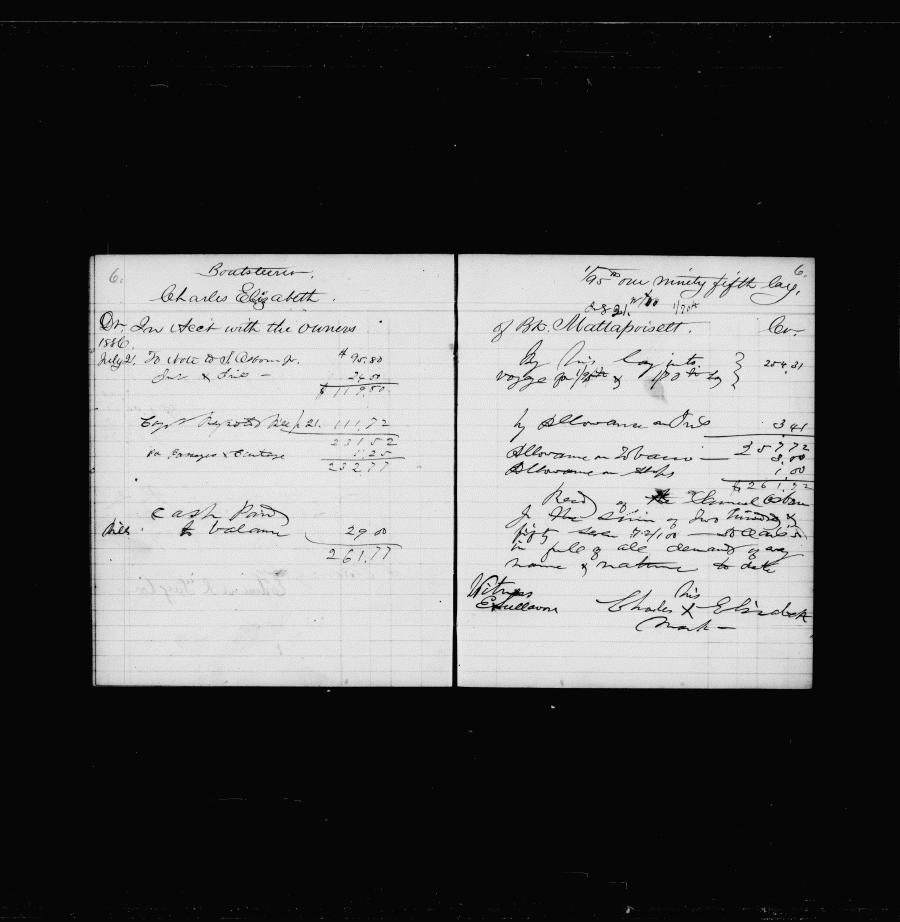 6.
Boatsteerer.
Charles Elizabeth.
Dr. In Acct with the owners
1886.
July 21. To Note to S. Osborn Jr. $ 95.80
Int & 24 00
$ 119.80
Capt Report 21. 111.72
231 52
1.25
232 77
Cash Paid
Bills. to balance 29 00
261.77
6.
1/95 th one ninety fifth lay,
1/70th
of Bk. Mattapoisett. Cr.
By his lay
voyage 1/95th & 1/70th lay 254.31
by Allowance on 3 41
257 72
Allowance on Tobacco — 3.00
Allowance on Slops 1 00
$ 261.72
Recd of Samuel Osborn
Jr. the sum of Two hundred &
fifty seven 72/100 — dollars
in full of all demands of every
name & nature to date
Witness his
E Sullavou Charles X Elizabeth
Mark —